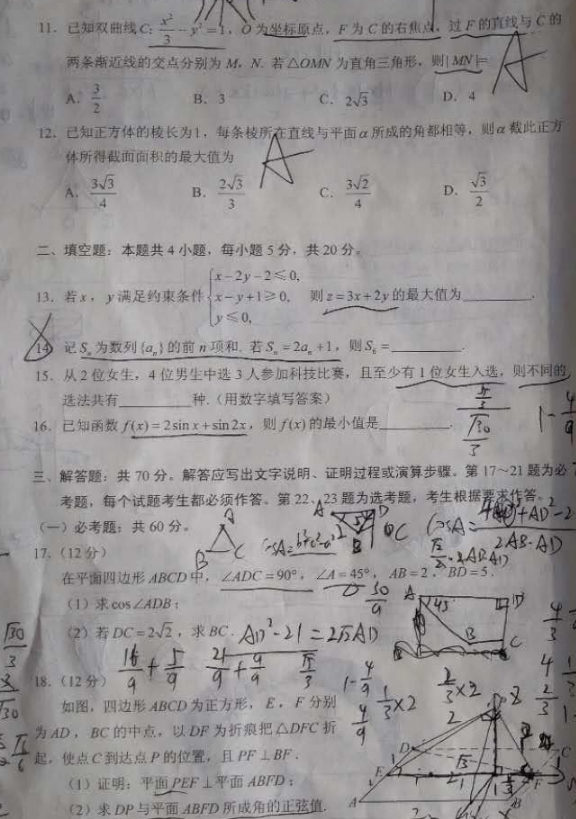 11. 已知双曲线C: x²/3 - y² = 1, O为坐标原点，F为C的右焦点，过F的直线与C的
两条渐近线的交点分别为M，N. 若△OMN为直角三角形，则|MN|=
A. 3/2 B. 3 C. 2√3 D. 4
A
12. 已知正方体的棱长为1，每条棱所在直线与平面α所成的角都相等，则α截此正方
体所得截面面积的最大值为
A
A. 3√3/4 B. 2√3/3 C. 3√2/4 D. √3/2
二、填空题：本题共4小题，每小题5分，共20分。
x-2y-2≤0,
13. 若x，y满足约束条件 x-y+1≥0, 则z=3x+2y的最大值为________.
y≤0,
14. 记Sₙ为数列{aₙ}的前n项和. 若Sₙ=2aₙ+1，则S₆=________.
15. 从2位女生，4位男生中选3人参加科技比赛，且至少有1位女生入选，则不同的
选法共有________种.（用数字填写答案）
16. 已知函数f(x)=2sin x+sin2x，则f(x)的最小值是________.
三、解答题：共70分。解答应写出文字说明、证明过程或演算步骤。第17~21题为必
考题，每个试题考生都必须作答。第22、23题为选考题，考生根据要求作答。
（一）必考题：共60分。
17.（12分）
在平面四边形ABCD中，∠ADC=90°，∠A=45°，AB=2，BD=5.
（1）求cos∠ADB；
（2）若DC=2√2，求BC.
AD²-21=2√2AD
18.（12分）
如图，四边形ABCD为正方形，E，F分别
为AD，BC的中点，以DF为折痕把△DFC折
起，使点C到达点P的位置，且PF⊥BF.
（1）证明：平面PEF⊥平面ABFD；
（2）求DP与平面ABFD所成角的正弦值.